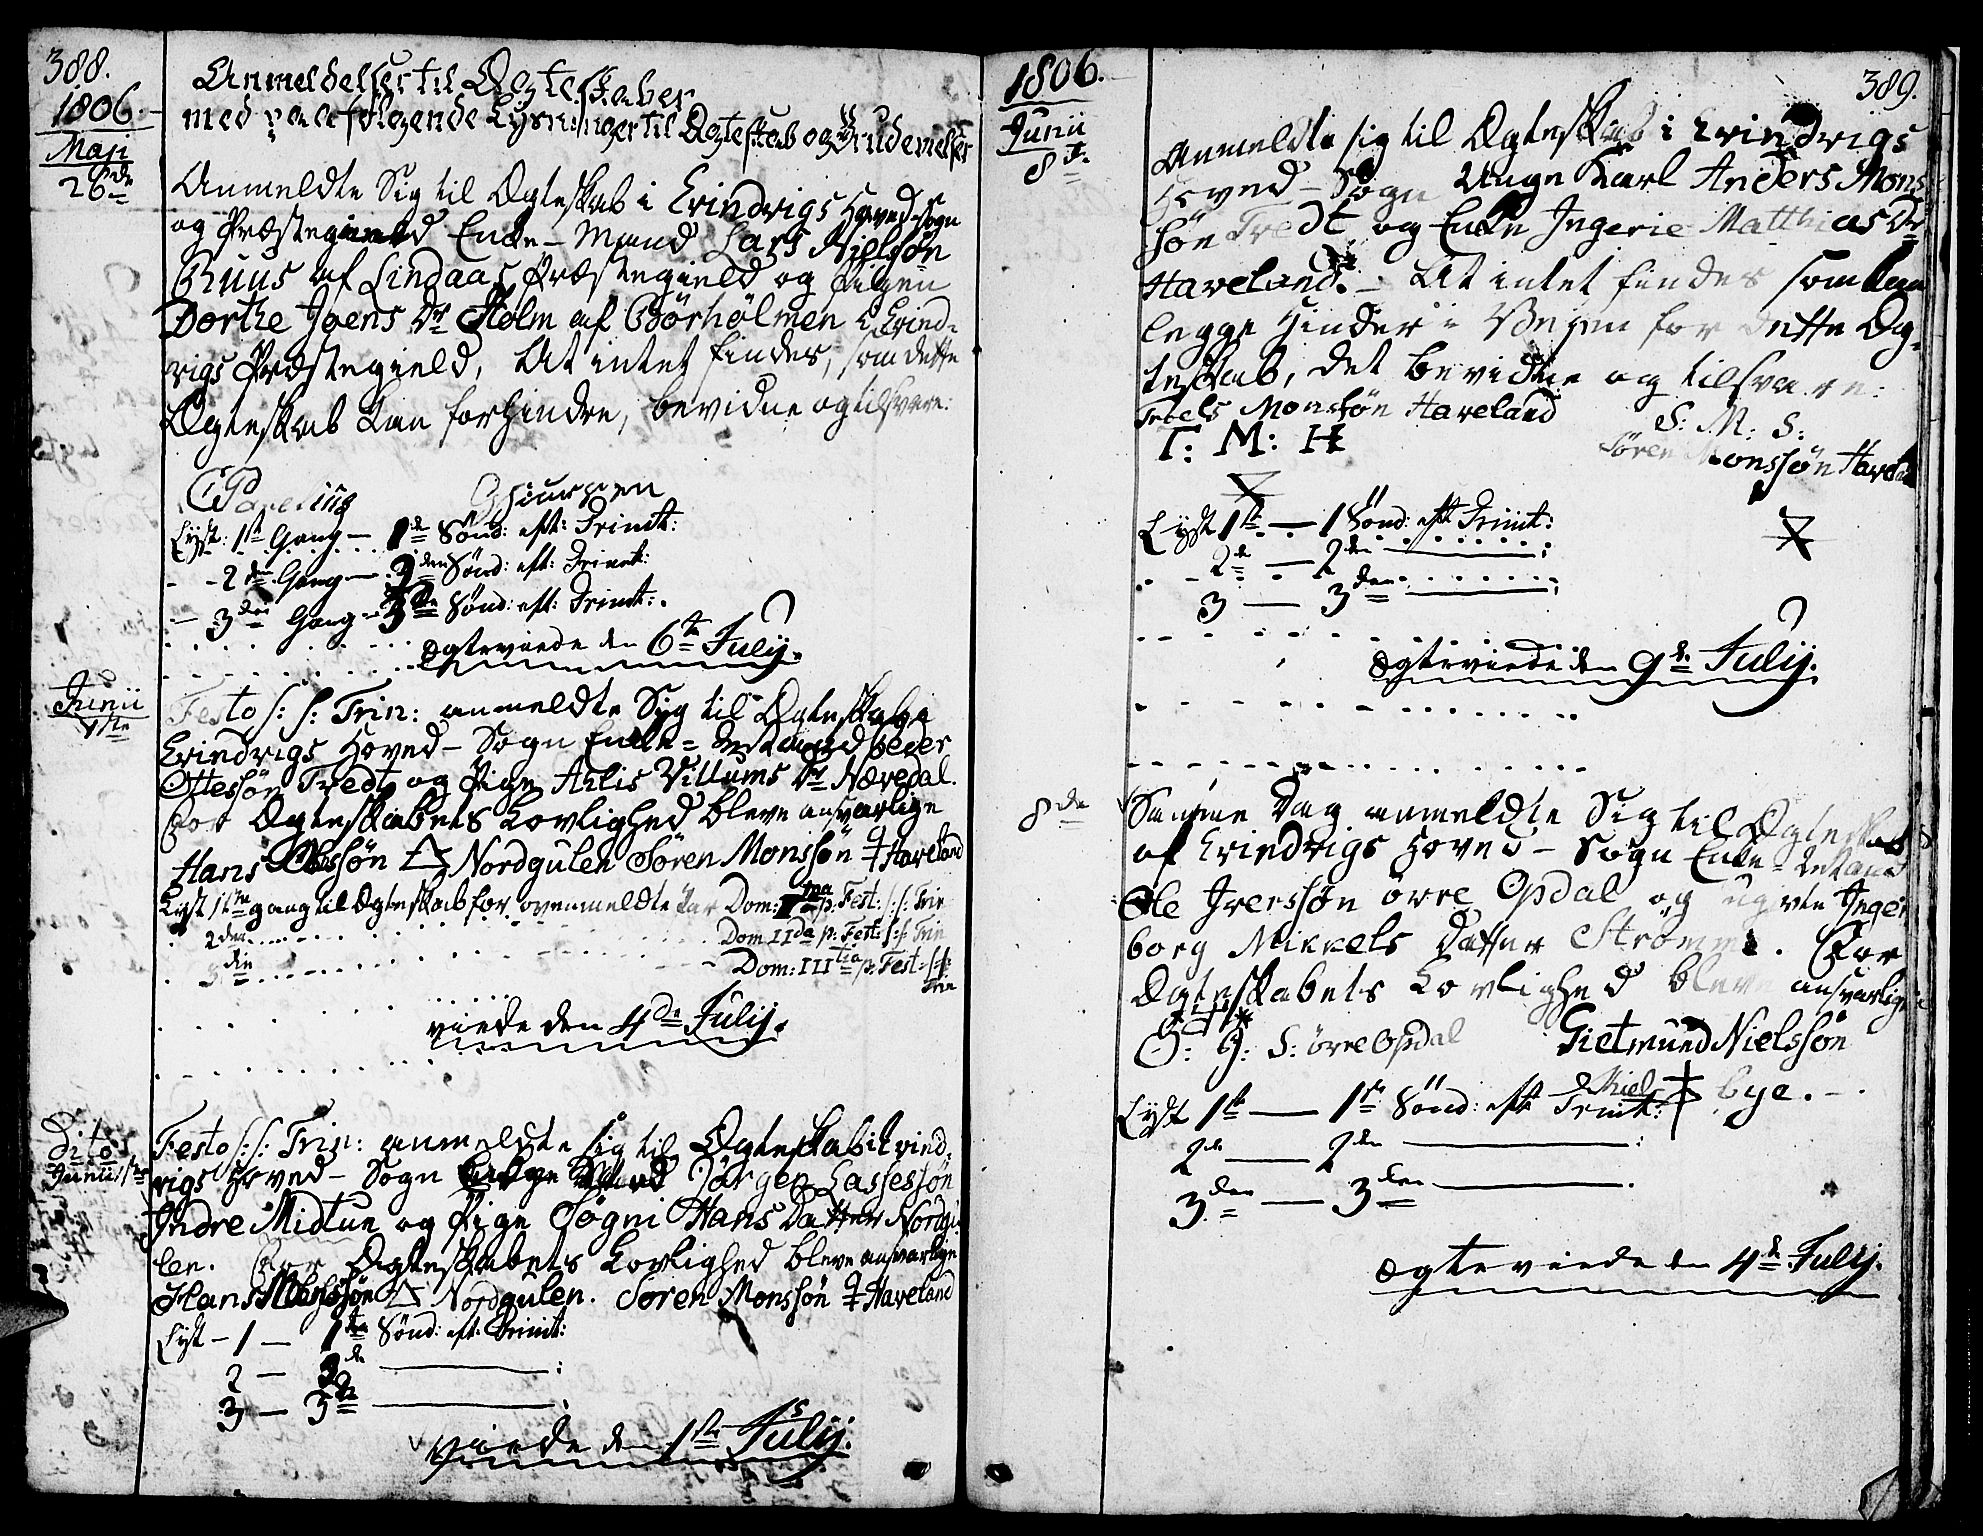 388.
1806.
Anmeldelser til Ægteskaber
med paafølgende Lysninger til Ægteskab og Brudevielser
Maji
26de
Anmeldte Sig til Ægteskab i Evindvigs Hoved-Sogn
og Præstegield Enke-Mand Lars Nielsøn
Ruus af Lindaas Præstegield og Pigen
Dorthe Joens Dr Holm af Børhølmen i Evind-
vigs Præstegield, At intet findes, som dette
Ægteskab kan forhindre, bevidne og tilsvare:
Lyst: 1te Gang — 1de Sønd: eft: Trinit:
- - 2den Gang — 2den Sønd: eft: Trinit:
- 3den Gang - 3de Sønd: eft: Trinit:.
Ægteviede den 6te Julij.
Junii
1ste
Festo s: s: Trin: anmeldte Sig til Ægteskab i
Evindvigs Hoved-Sogn Enke-Mand Peder
Ottessøn Tredt og Pige Ahlis Villums Dr Næredal.
For Ægteskabets Lovlighed bleve ansvarlige
Hans Nordgulen Søren Monssøn Haveland
Lyst 1ste gang til Ægteskab for ovenmeldte Par Dom: Ima p: Fest: s: s: Trin
2den Dom IIda p: Fest: s: s: Trin
3die Dom: IIItia p: Fest: s: s:
Trin
viede den 4de Julij.
Dito
Junii 1ste
Festo s: s: Trin: anmeldte sig til Ægteskab i Evind-
vigs Hoved-Sogn Jørgen Lassessøn
Indre Midtun og Pige Søgni Hans Datter Nordgu-
len. For Ægteskabets Lovlighed bleve ansvarlige
Hans Nordgulen. Søren Monssøn Haveland
Lyst - 1 — 1ste Sønd: eft: Trinit:
2 — 2de :
3 — 3de :
viede den 1ste Julij.
1806.
389.
Junii
8de
Anmeldte sig til Ægteskab i Evindvigs
Hoved-Sogn Unge Karl Anders Mons
søn Tredt, og Enke Ingerie Matthias Dr
Haveland. - At intet findes som kan
legge Hinder i Vejen for dette Æg-
teskab, det bevidne og tilsvare:
Troels Monsøn Haveland
S: M: S:
T: M: H
Søren Monssøn Havela
Lyst 1te — 1 Sønd: eft Trinit:
2de — 2den :
3 — 3den :
Ægteviede den 9de Julij.
8de
Samme Dag anmeldte Sig til Ægteskab
af Evindvigs Hoved-Sogn Enke-Mand
Ole Iverssøn övre Opdal og Inger
borg Mikkels Datter Strömme. For
Ægteskabets Lovlighed bleve ansvarlige
O: I: S: övre Opdal Gietmund Nielssøn
Bye. -
Lyst 1te — 1te Sønd: eft Trinit:
2de — 2den :
3den — 3den .
Ægteviede den 4de Julij.